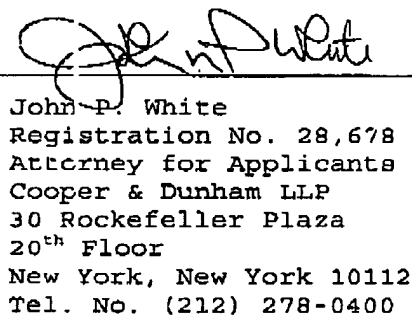 John P White
John P. White
Registration No. 28,678
Attorney for Applicants
Cooper & Dunham LLP
30 Rockefeller Plaza
20th Floor
New York, New York 10112
Tel. No. (212) 278-0400